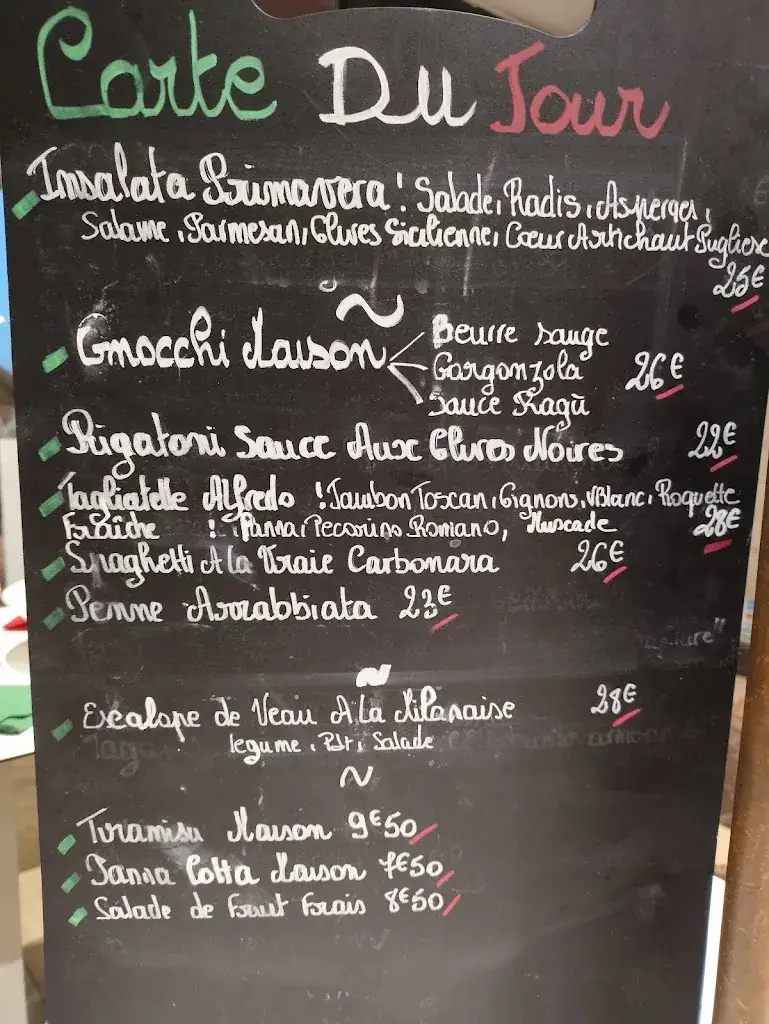 Carte Du Jour
Insalata Primavera ! Salade, Radis, Asperges,
Salame, Parmesan, Olives Sicilienne, Cœur Artichaut Pugliese
25€
~
Gnocchi Maison
Beurre sauge
Gorgonzola 26€
Sauce Ragù
Rigatoni Sauce Aux Olives Noires 22€
Tagliatelle Alfredo ! Jambon Toscan, Oignons, VBlanc, Roquette
Fraîche ! Panna, Pecorino Romano, Muscade 28€
Spaghetti A la Vraie Carbonara 26€
Penne Arrabbiata 23€
~
Escalope de Veau A La Milanaise 28€
legume, Salade
~
Tiramisu Maison 9€50
Panna Cotta Maison 7€50
Salade de Fruit Frais 8€50